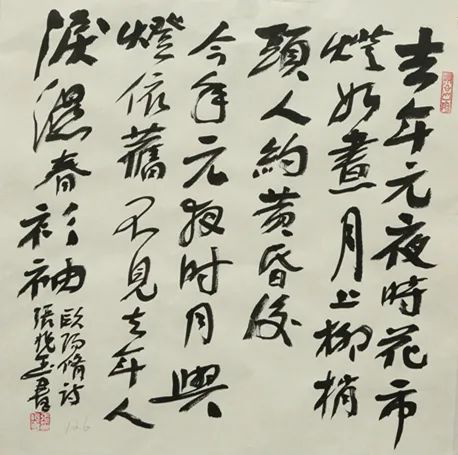 去年元夜時花市
燈如晝月上柳梢
頭人約黄昏後
今年元夜时月與
燈依舊不見去年人
淚濕春衫袖
歐陽脩詩
張 書